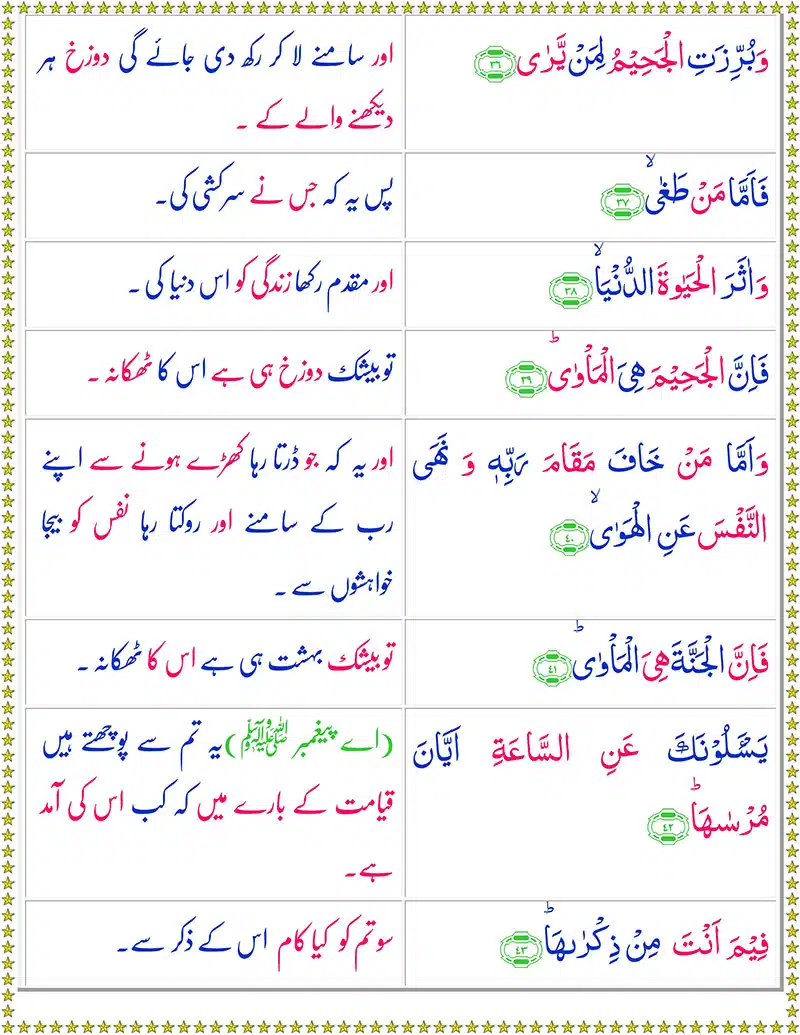 وَبُرِّزَتِ الْجَحِيْمُ لِمَنْ يَّرٰى ٣٦
اور سامنے لا کر رکھ دی جائے گی دوزخ ہر
دیکھنے والے کے ۔
فَاَمَّا مَنْ طَغٰىۙ ٣٧
پس یہ کہ جس نے سرکشی کی۔
وَاٰثَرَ الْحَيٰوةَ الدُّنْيَاۙ ٣٨
اور مقدم رکھا زندگی کو اس دنیا کی ۔
فَاِنَّ الْجَحِيْمَ هِىَ الْمَاْوٰىؕ ٣٩
تو بیشک دوزخ ہی ہے اس کا ٹھکانہ ۔
وَاَمَّا مَنْ خَافَ مَقَامَ رَبِّهٖ وَ نَهَى
النَّفْسَ عَنِ الْهَوٰىۙ ٤٠
اور یہ کہ جو ڈرتا رہا کھڑے ہونے سے اپنے
رب کے سامنے اور روکتا رہا نفس کو بیجا
خواہشوں سے ۔
فَاِنَّ الْجَنَّةَ هِىَ الْمَاْوٰىؕ ٤١
تو بیشک بہشت ہی ہے اس کا ٹھکانہ ۔
يَسْـَٔـلُوْنَكَ عَنِ السَّاعَةِ اَيَّانَ
مُرْسٰىهَاؕ ٤٢
(اے پیغمبر ﷺ) یہ تم سے پوچھتے ہیں
قیامت کے بارے میں کہ کب اس کی آمد
ہے۔
فِيْمَ اَنْتَ مِنْ ذِكْرٰٮهَاؕ ٤٣
سو تم کو کیا کام اس کے ذکر سے۔